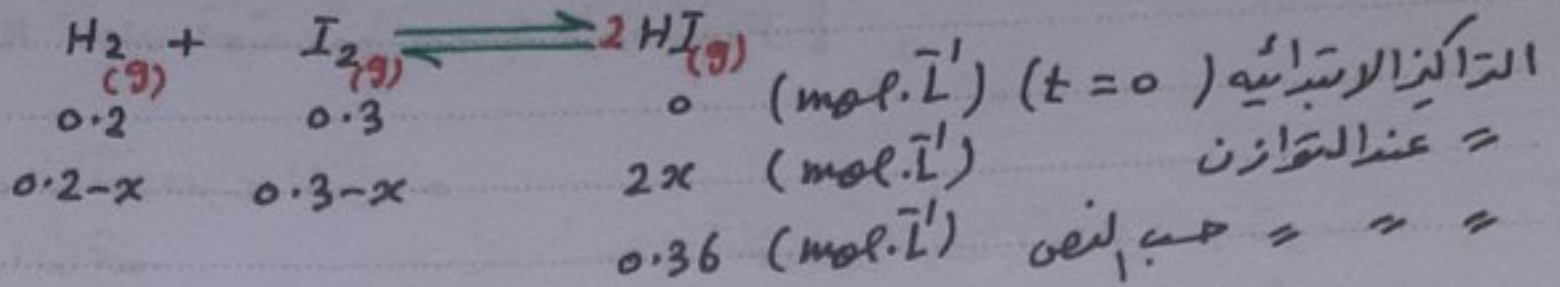 H₂(g) + I₂(g) ⇌ 2 HI(g)
0.2 0.3 0 (mol.L⁻¹) (t = 0) التراكيز الابتدائيه
0.2-x 0.3-x 2x (mol.L⁻¹) = عند التوازن
0.36 (mol.L⁻¹) = = = حسب النص